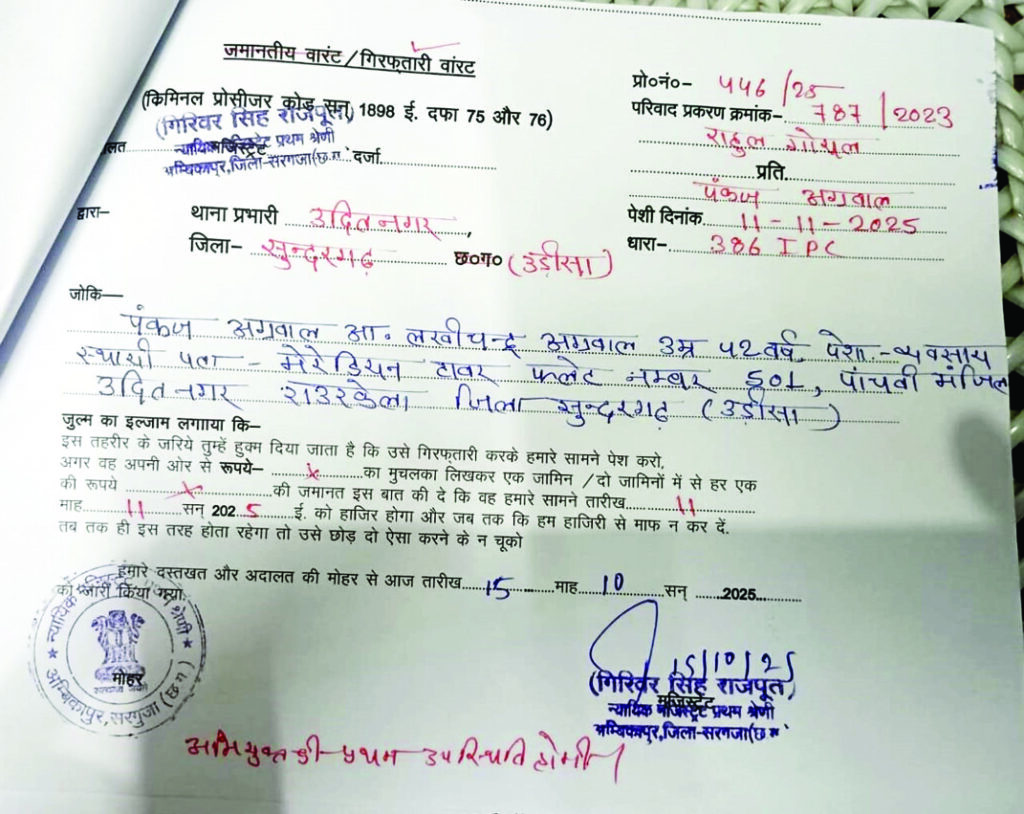 जमानतीय वारंट/गिरफ्तारी वांरट
(किमिनल प्रोसीजर कोड सन् 1898 ई. दफा 75 और 76)
(गिरिवर सिंह राजपूत)
न्यायिक मजिस्ट्रेट प्रथम श्रेणी
लत मजिस्ट्रेट दर्जा
अम्बिकापुर, जिला-सरगुजा(छ.ग.
प्रो०नं०- ५५6/25
परिवाद प्रकरण क्रमांक- 787/2023
राहुल गोयल
प्रति
पंकज अग्रवाल
पेशी दिनांक 11-11-2025
धारा- 386 IPC
द्वारा- थाना प्रभारी उदितनगर,
जिला- सुन्दरगढ़ छ०ग० (उड़ीसा)
जोकि—
पंकज अग्रवाल आ. लखीचन्द्र अग्रवाल उम्र ५२ वर्ष, पेशा-व्यवसाय
स्थायी पता - मेरेडियन टावर फ्लेट नम्बर ६०1, पांचवी मंजिल
उदितनगर राउरकेला जिला सुन्दरगढ़ (उड़ीसा)
जुल्म का इल्जाम लगााया कि—
इस तहरीर के जरिये तुम्हें हुक्म दिया जाता है कि उसे गिरफ्तारी करके हमारे सामने पेश करो,
अगर वह अपनी ओर से रूपये— x का मुचलका लिखकर एक जामिन / दो जामिनों में से हर एक
की रूपये x की जमानत इस बात की दे कि वह हमारे सामने तारीख 11
माह 11 सन् 2025 ई. को हाजिर होगा और जब तक कि हम हाजिरी से माफ न कर दें.
तब तक ही इस तरह होता रहेगा तो उसे छोड़ दो ऐसा करने के न चूको
हमारे दस्तखत और अदालत की मोहर से आज तारीख 15 माह 10 सन् 2025
को जारी किया गया.
न्यायिक श्रेणी
मोहर
अम्बिकापुर, सरगुजा (छ.ग.)
15/10/25
(गिरिवर सिंह राजपूत)
मजिस्ट्रेट
न्यायिक मजिस्ट्रेट प्रथम श्रेणी
अम्बिकापुर, जिला-सरगुजा(छ.ग.
अभियुक्त की प्रथम उपस्थिति होगी